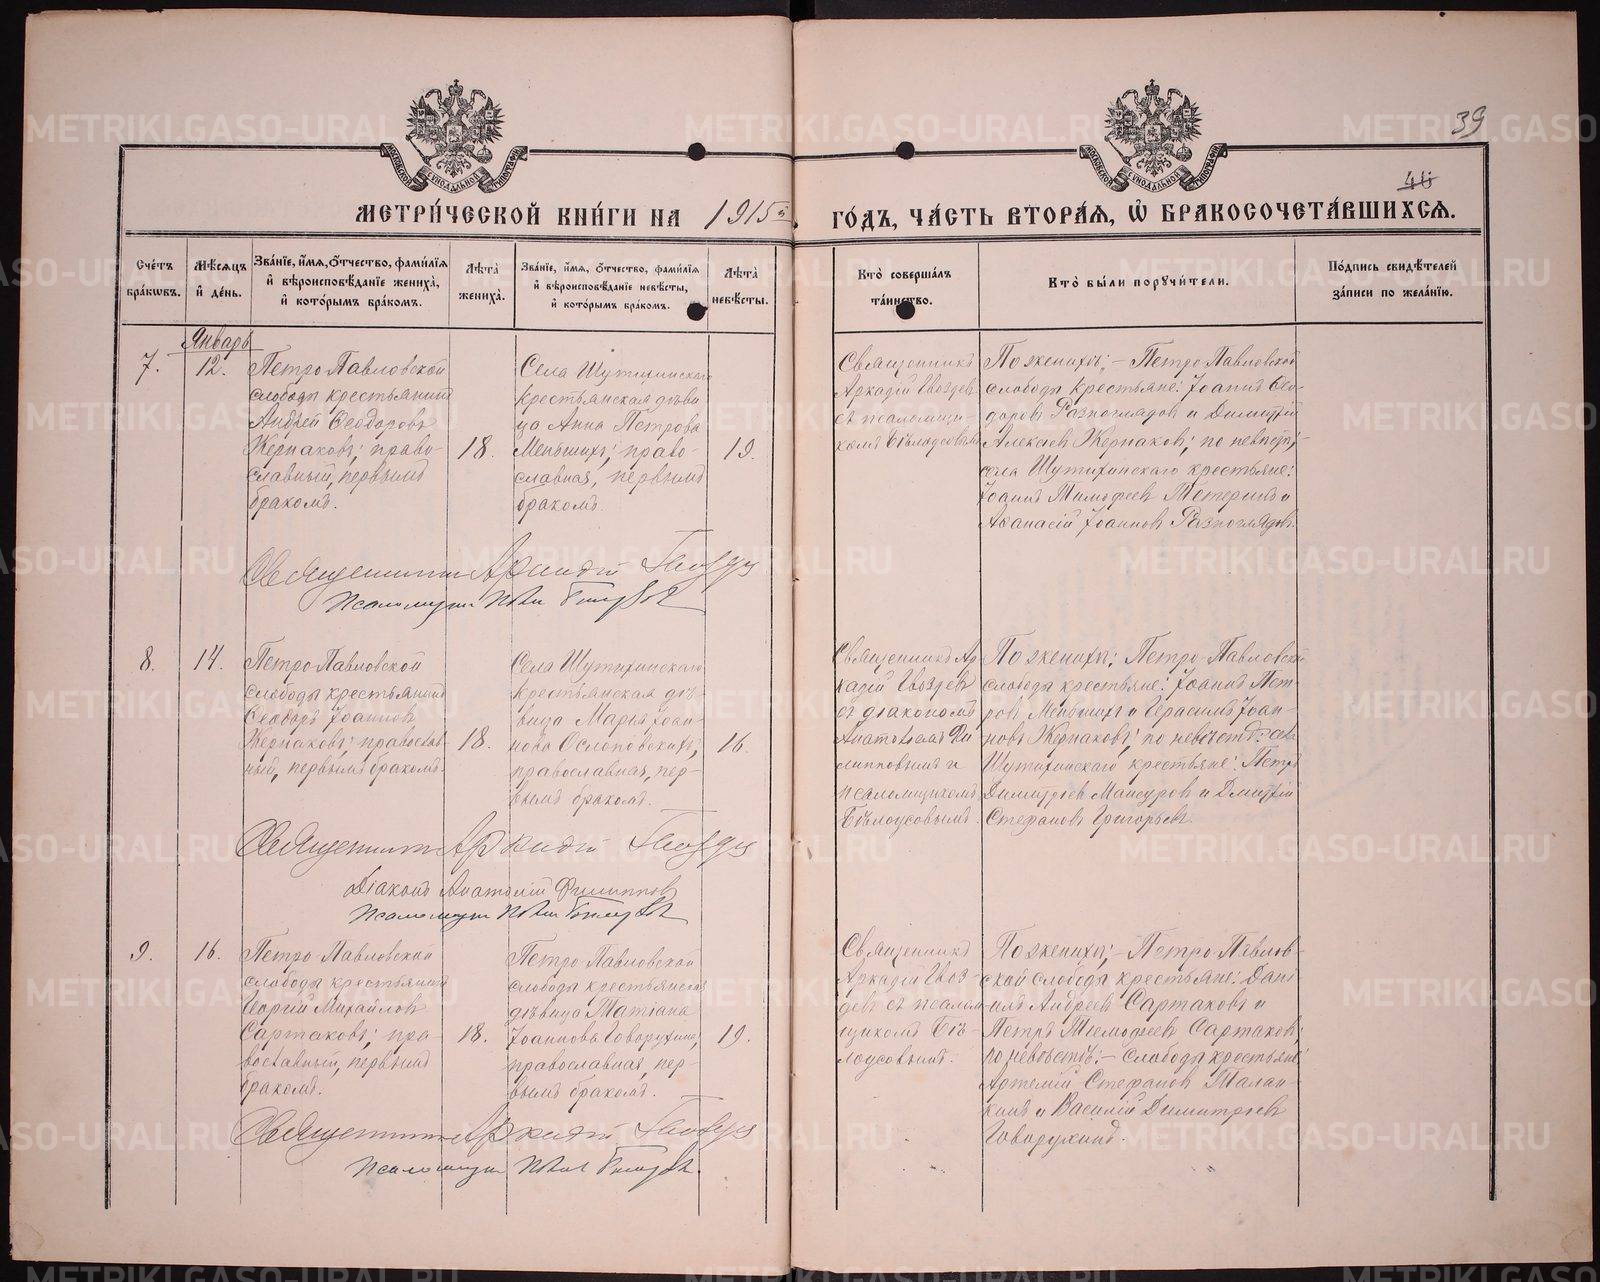 39
40
МЕТРИ́ЧЕСКОЙ КНИ́ГИ НА 1915й ГО́ДЪ, ЧА́СТЬ ВТОРА́Я, Ѡ БРАКОСОЧЕТА́ВШИХСЯ.
Сче́тъ бра́кѡвъ.
Мѣ́сяцъ и де́нь.
Зва́нїе, и́мя, о́тчество, фами́лїя и вѣроисповѣ́данїе жениха̀, и кото́рымъ бра́комъ.
Лѣ́та жениха̀.
Зва́нїе, и́мя, о́тчество, фами́лїя и вѣроисповѣ́данїе невѣ́сты, и кото́рымъ бра́комъ.
Лѣ́та невѣ́сты.
Кто̀ соверша́лъ та́инство.
Кто̀ бы́ли поручи́тели.
По́дпись свидѣ́телей за́писи по жела́нїю.
Январь
7.
12.
Петро Павловской
слободы крестьянинъ
Андрей Ѳеодоровъ
Жернаковъ; право-
славный, первымъ
бракомъ.
18.
Села Шутихинскаго
крестьянская дѣви
ца Анна Петрова
Меньшихъ; право-
славная, первымъ
бракомъ.
19.
Священникъ
Аркадій Гвоздев
съ псаломщи-
комъ Бѣлоусовымъ
По женихѣ; – Петро Павловской
слободы крестьяне: Іоаннъ Ѳео-
доровъ Разпоглядов и Димитрій
Алексѣев Жернаков; по невѣстѣ;-
села Шутихинскаго крестьяне:
Іоаннъ Тимофеев Тетеринъ и
Аѳанасій Іоаннов Разпоглядов.
Священникъ Аркадій Гвоздев
Псаломщикъ
8.
14.
Петро Павловской
слободы крестьянинъ
Ѳеодоръ Іоаннов
Жернаковъ; православ-
ный, первымъ бракомъ.
18.
Села Шутихинскаго
крестьянская дѣ-
вица Марья Іоан-
нова Ослоповскихъ;
православная, пер-
вымъ бракомъ.
16.
Священникъ Ар-
кадій Гвоздев
съ діакономъ
Анатоліемъ Фи
липповымъ и
псаломщикомъ
Бѣлоусовымъ.
По женихѣ; Петро-Павловской
слободы крестьяне: Іоаннъ Пет-
ровъ Меньшихъ и Герасимъ Іоан-
новъ Жернаковъ; по невѣстѣ: села
Шутихинскаго крестьяне: Петръ
Димитріев Мансуров и Дмитрій
Стефанов Григорьев.
Священникъ Аркадій Гвоздев
Діаконъ Анатолій Филиппов
Псаломщикъ
9.
16.
Петро Павловской
слободы крестьянинъ
Георгій Михайлов
Сартаковъ; пра-
вославный, первымъ
бракомъ.
18.
Петро Павловской
слободы крестьянская
дѣвица Татіана
Іоаннова Говорухина,
православная, пер-
вымъ бракомъ.
19.
Священникъ
Аркадій Гвоз-
девъ съ псалом
щикомъ Бѣ-
лоусовымъ.
По женихѣ; – Петро Павлов-
ской слободы крестьяне: Дані
илъ Андреев Сартаковъ и
Петръ Тимофеев Сартаков;
по невѣстѣ; – слободы крестьяне:
Артемій Стефанов Талан-
кинъ и Василій Димитріев
Говорухинъ.
Священникъ Аркадій Гвоздев
Псаломщикъ
METRIKI.GASO-URAL.RU